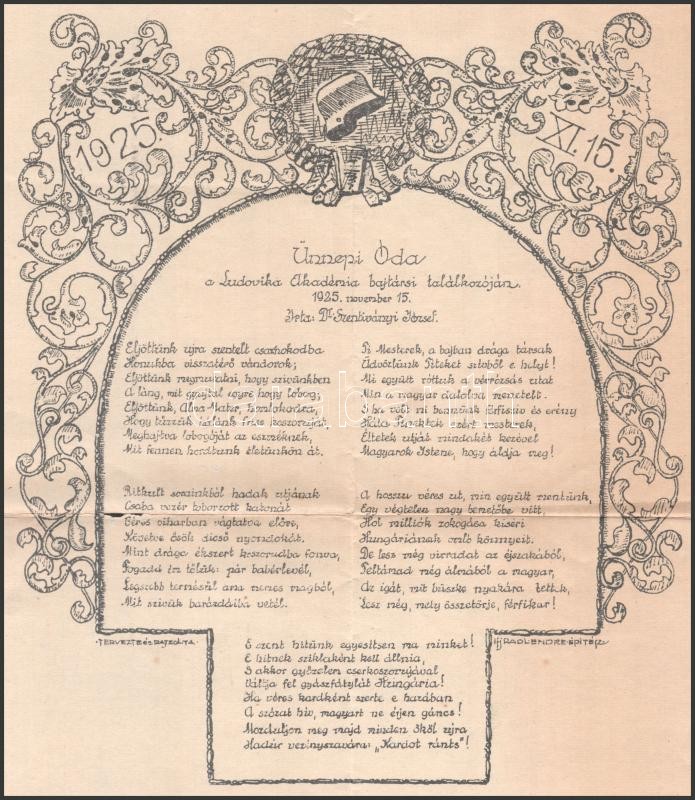 1925
XI. 15.
Ünnepi Óda
a Ludovika Akadémia bajtársi találkozóján.
1925. november 15.
Irta: Dr Szentiványi József.
Eljöttünk ujra szentelt csarnokodba
Honunkba visszatérő vándorok;
Eljöttünk megmutatni, hogy szivünkben
A láng, mit gyujtál egyre nagy lobog;
Eljöttünk, Alma Mater, homlokodra,
Hogy tűzzük hálánk friss koszoruját,
Meghajtva lobogóját az eszmének,
Mit fennen hordtunk életünkön át.
Ti Mesterek, a bajban drága társak
Üdvözlünk Titeket szivből e helyt!
Mi együtt róttuk a vérázsás utat
Min a magyar diadalom menetelt.
S ha volt mi bennünk férfisziv és erény
Hála Tinéktek ezért mesterek,
Éltetek utját mindakét kezével
Magyarok Istene, hogy áldja meg!
Ritkult sorainkból hadak utjának
Csaba vezér toborzott katonát
Véres viharban vágtatva előre,
Követve ősök dicső nyomdokát.
Mint drága ékszert koszorudba fonva,
Fogadd im tőlük: pár babérlevél,
Legszebb termésül ama nemes magból,
Mit szivük barázdáiba vetél.
A hosszu véres ut, min együtt mentünk,
Egy végtelen nagy temetőbe vitt,
Hol milliók zokogása kiséri
Hungáriának omló könnyeit.
De lesz még virradat az éjszakából,
Feltámad még álmából a magyar,
Az igát, mit büszke nyakára tettek,
Lesz még, mely összetörje, férfikar!
TERVEZTE ÉS RAJZOLTA
IFJ RADL ENDRE ÉPITÉSZ
S szent hitünk egyesitsen ma minket!
E hitnek sziklaként kell állnia,
S akkor győzelem cserkoszorujával
Váltja fel gyászfátylát Hungária!
Ha véres kardként szerte e hazában
A szózat hiv, magyart ne érjen gáncs!
Mozduljon meg majd minden ököl ujra
Hadur vezényszavára: „Kardot ránts"!